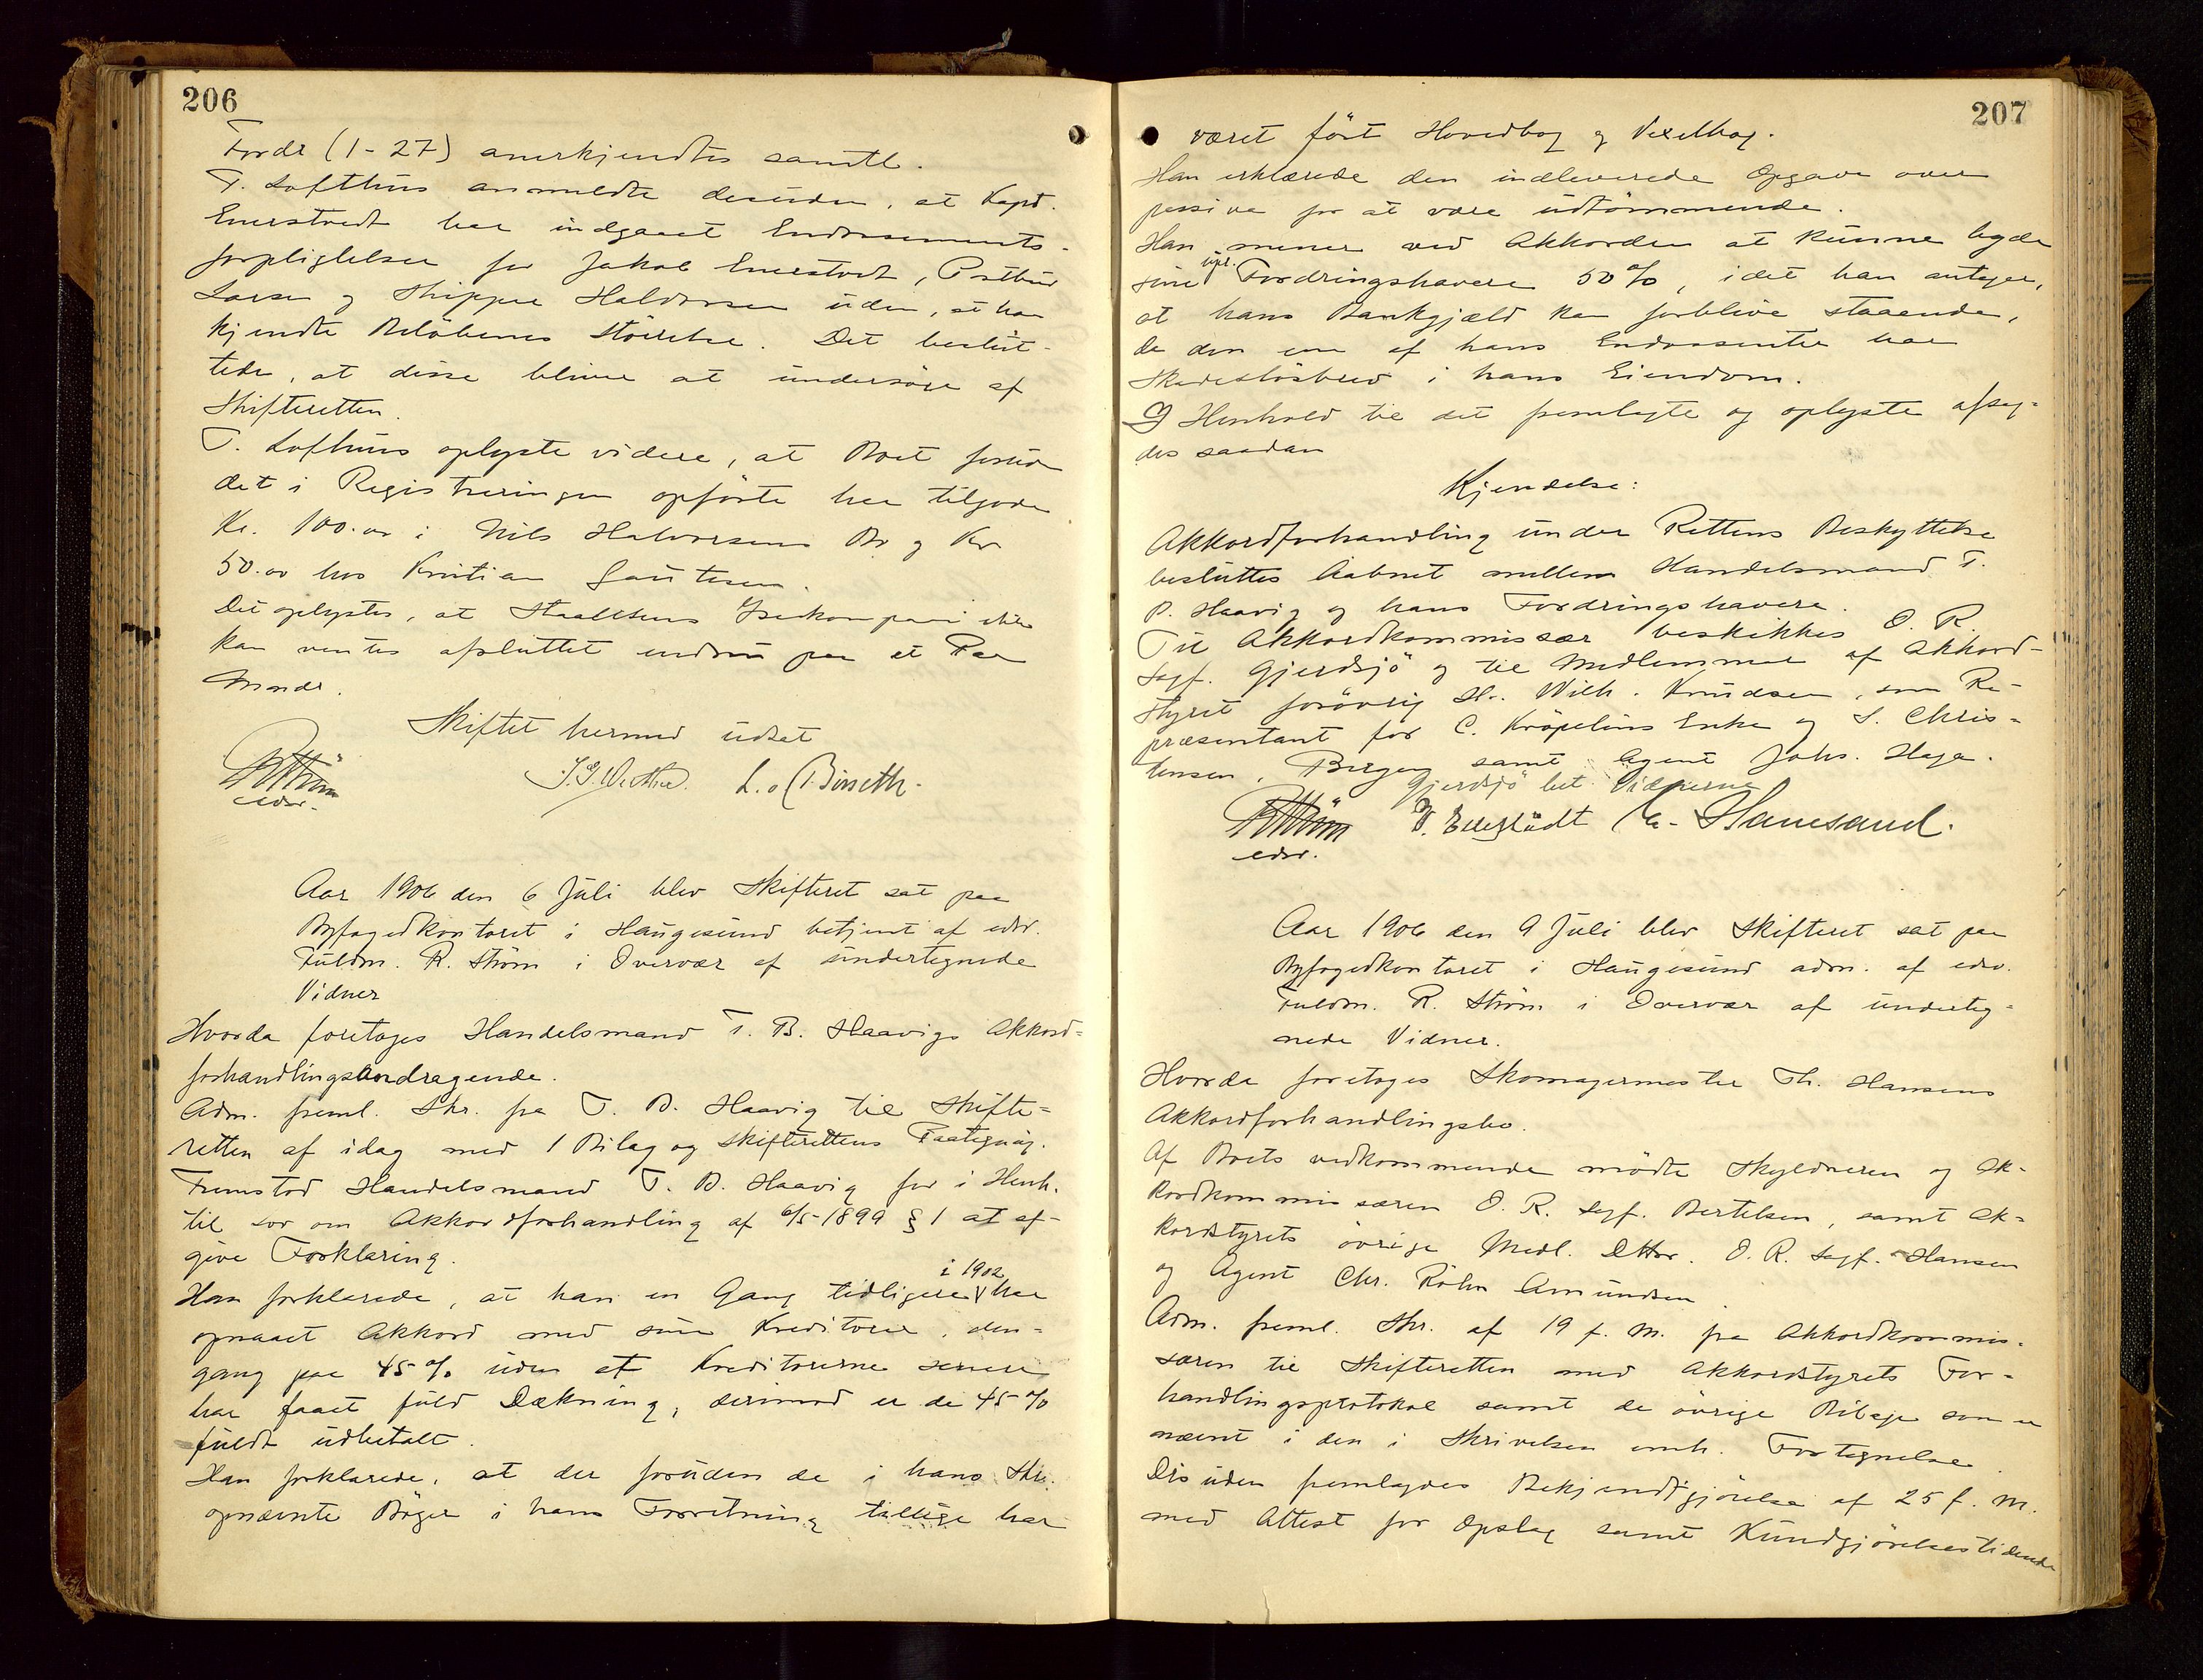 206
Fordr (1-27) anerkjendtes samtl.
T. Lofthus anmeldte desuden, at Kapt.
Enerstvedt har indgaaet Endossements-
forpligtelser for Jakob Enerstvedt, Postbud
Larsen og Skipper Haldorsen uden, at han
kjendte Beløbenes Størrelse. Det beslut-
tedes, at disse bliver at undersøge af
Skifteretten.
T. Lofthus oplyste videre, at Boet foruden
det i Registreringen opførte har tilgode
Kr. 100.00 i Nils Halvorsens Bo og Kr
50.00 hos Kristian Gautesen.
Det oplystes, at Staaltsens Iskompani ikke
kan ventes afsluttet endnu paa et Par
Mndr.
Skiftet hermed udsat
RStrøm
edsv.
L. o. Binseth.
Aar 1906 den 6 Juli blev Skifteret sat paa
Byfogedkontoret i Haugesund betjent af edsv.
Fuldm. R. Strøm i Overvær af undertegnede
Vidner
Hvorda foretoges Handelsmand T. B. Haavigs Akkord-
forhandlingsandragende.
Adm. freml. Skr. fra T. B. Haavig til Skifte-
retten af idag med 1 Bilag og Skifterettens Paategning.
Fremstod Handelsmand T. B. Haavig for i Henh.
til Lov om Akkordforhandling af 6/5-1899 § 1 at af-
give Forklaring.
Han forklarede, at han en Gang tidligere i 1902 har
opnaaet Akkord med sine Kreditorer, den-
gang paa 45% uden at Kreditorerne senere
har faaet fuld Dækning, derimod er de 45%
fuldt udbetalt.
Han forklarede, at der foruden de i hans Skr.
opnævnte Bøger i hans Forretning tillige har
207
været ført Hovedbog og Vexelbog.
Han erklærede den indleverede Opgave over
passiva for at være udtømmende.
Han mener ved Akkorden at kunne byde
sine upr. Fordringshavere 50%, idet han antager,
at hans Bankgjæld kan forblive staaende,
da den ene af hans Endossenter har
Skadesløsbrev i hans Eiendom.
I Henhold til det fremlagte og oplyste afsag-
des saadan
Kjendelse:
Akkordforhandling under Rettens Beskyttelse
besluttes aabnet mellem Handelsmand T.
B. Haavig og hans Fordringshavere.
Til Akkordkommissær beskikkes O. R.
Sagf. Gjerdsjø og til Medlemmer af Akkord-
styret forøvrig Hr. Wilh. Knudsen, som Re-
præsentant for C. Krøpelins Enke og S. Chris-
tensen, Bergen samt Agent Johs. Haga.
Gjerdsjø bet. Vidnerne
RStrøm
edsv.
Hanesand.
Aar 1906 den 9 Juli blev Skifteret sat paa
Byfogedkontoret i Haugesund adm. af edsv.
Fuldm. R. Strøm i Overvær af underteg-
nede Vidner.
Hvorda foretoges Skomagermester Th. Hansens
Akkordforhandlingsbo.
Af Boets vedkommende mødte Skyldneren og Ak-
kordkommissæren O. R. Sagf. Bertelsen, samt Ak-
kordstyrets øvrige Medl. DHrr. O. R. Sagf. Hansen
og Agent Chr. Røhn Amundsen.
Adm. freml. Skr. af 19 f. M. fra Akkordkommis-
særen til Skifteretten med Akkordstyrets For-
handlingsprotokol samt de øvrige Bilage som er
nævnt i den i Skrivelsen omh. Fortegnelse.
Desuden fremlagdes Bekjendtgjørelse af 25 f. M.
med Attest for Opslag samt Kundgjørelsestidende